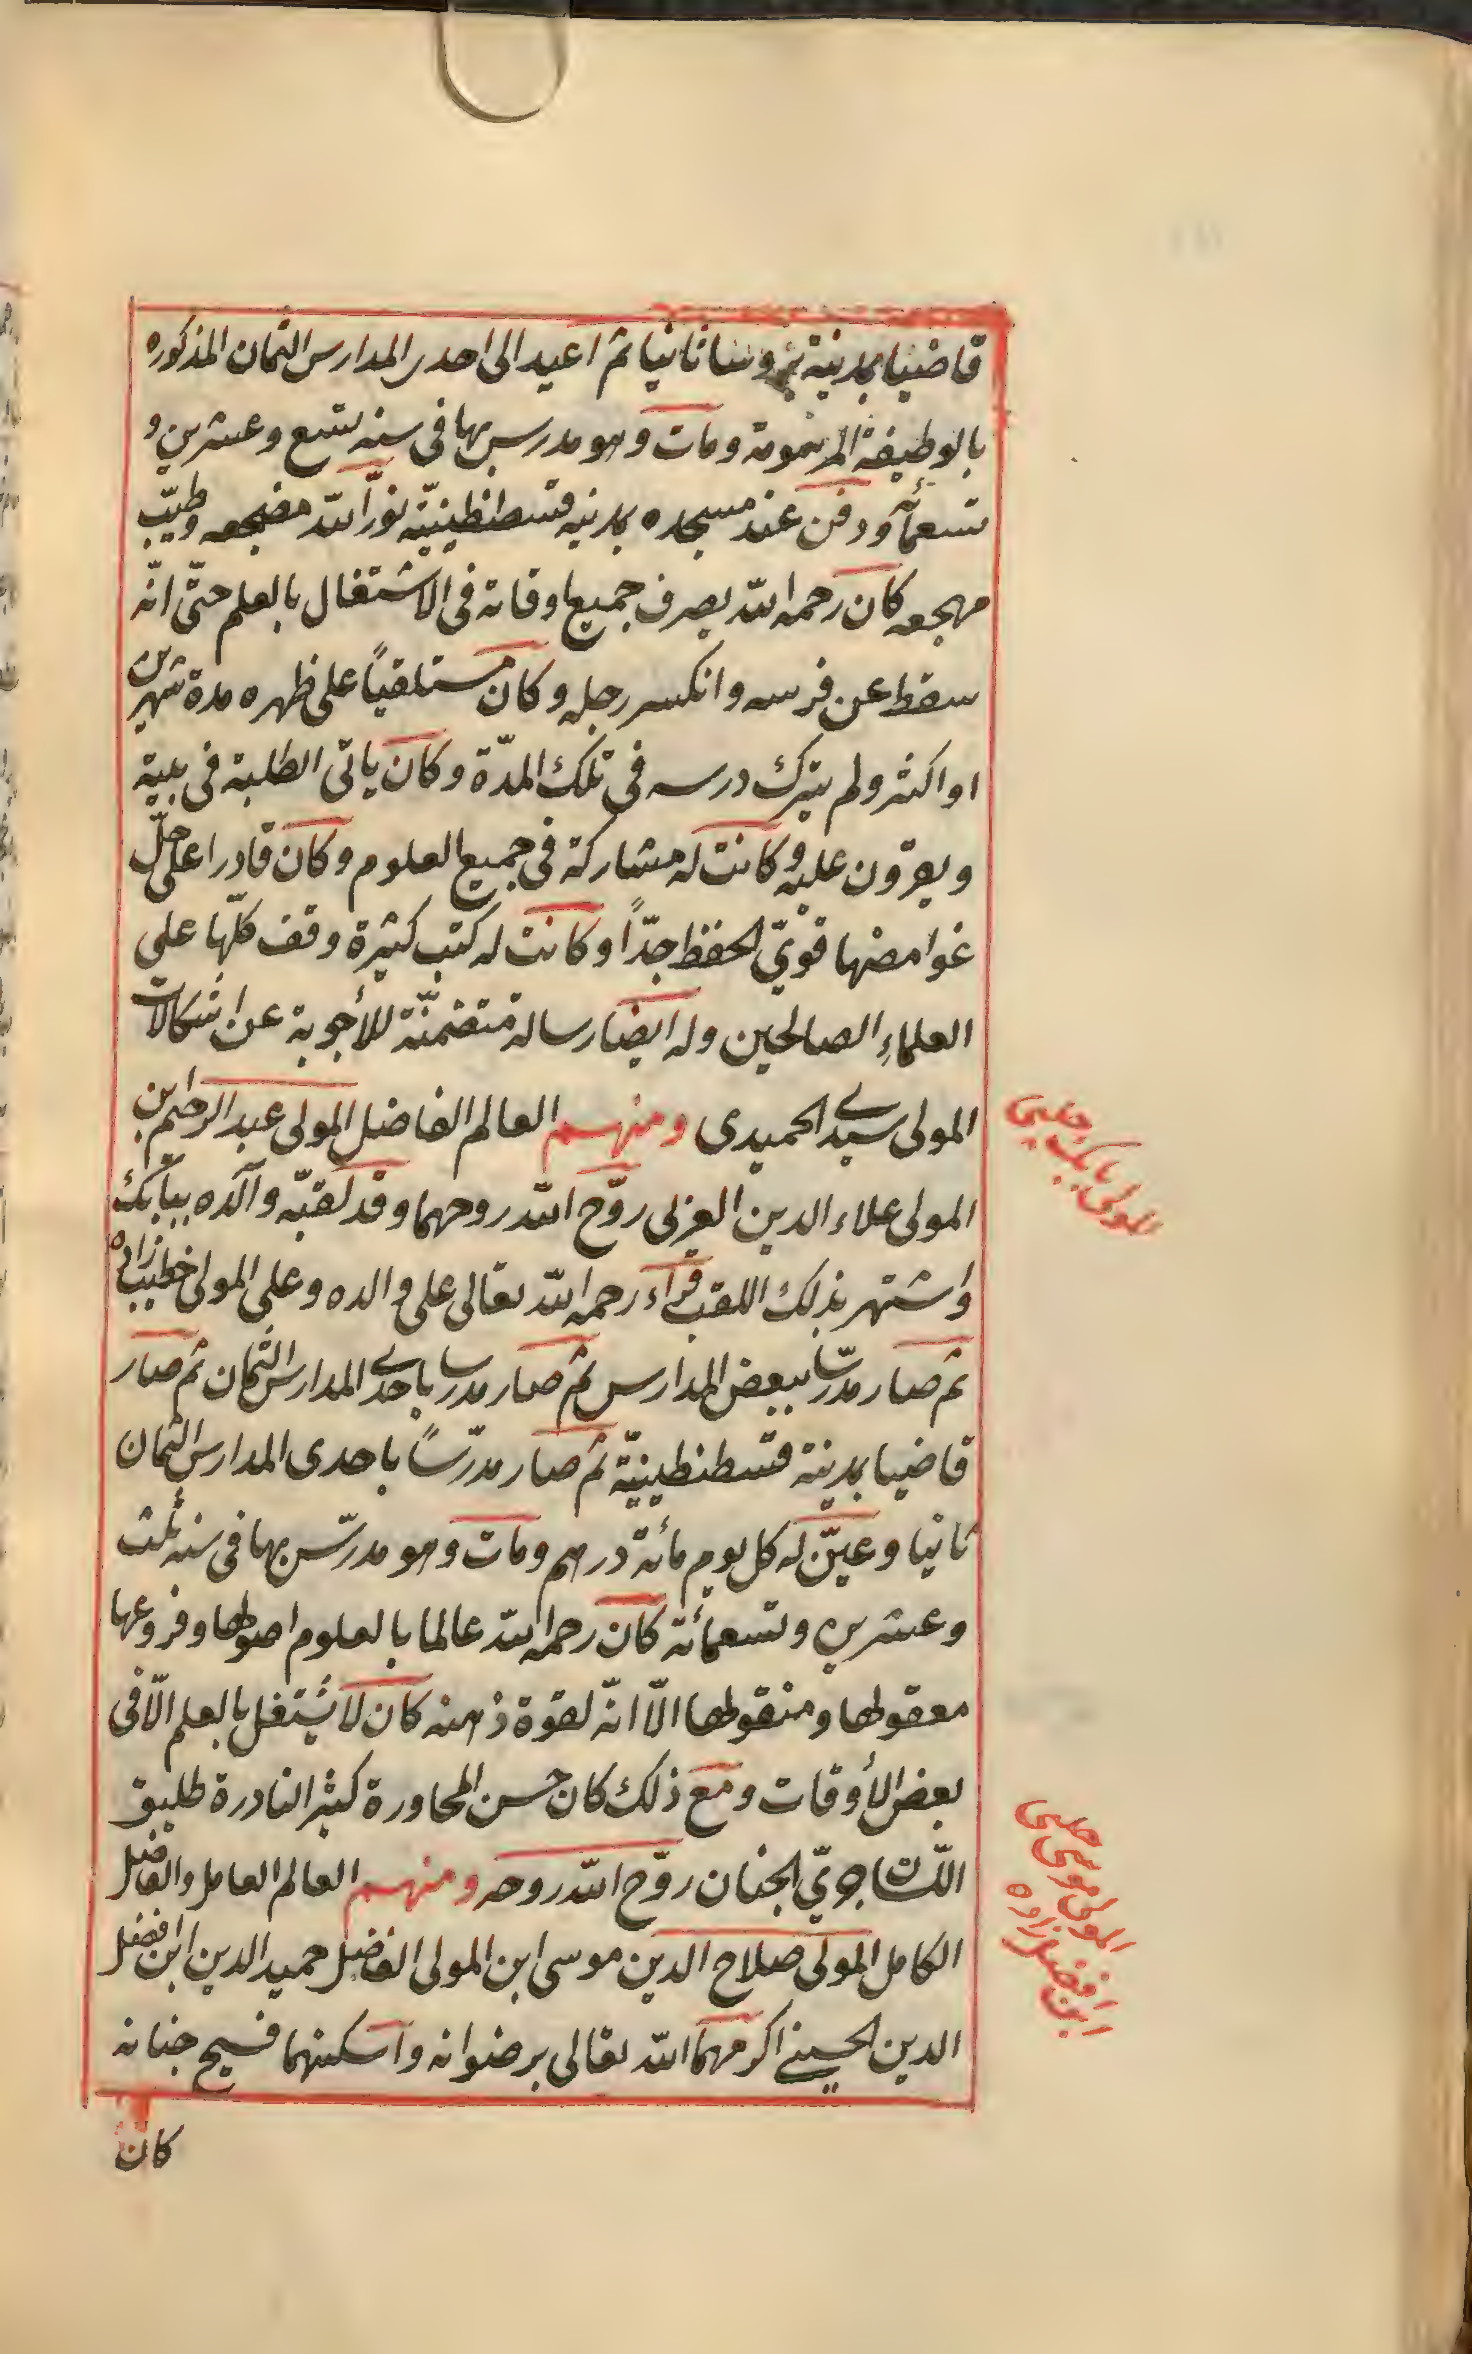 قاضيا بمدينة بروسا ثانيا ثم اعيد الى احدى المدارس الثمان المذكوره
بالوظيفة المرسومة ومات وهو مدرس بها فى سنه تسع وعشرين و
تسعمائه ودفن عند مسجده بمدينه قسطنطينيّة نوّر الله مضجعه وطيّب
مهجعه كان رحمه الله يصرف جميع اوقاته فى الاشتغال بالعلم حتّى انّه
سقط عن فرسه وانكسر رجله وكان مستلقياً على ظهره مدة شهرين
او اكثر ولم يترك درسه فى تلك المدّة وكان ياتى الطلبة فى بيته
ويقرؤن عليه وكانت له مشاركة فى جميع العلوم وكان قادرا على حلّ
غوامضها قوىّ الحفظ جدّاً وكانت له كتب كثيرة وقف كلّها على
العلماء الصالحين وله ايضا رسالة متضمنّة للأجوبة عن اشكالات
المولى سيدى الحميدى ومنهم العالم الفاضل المولى عبد الرحيم بن
المولى علاء الدين العربى روّح الله روحهما وقد لقبّه والده ببابك
واشتهر بذلك اللقب قرآء رحمه الله تعالى على والده وعلى المولى خطيب زاده
ثم صار مدرّسا ببعض المدارس ثم صار مدرسا باحدى المدارس الثمان ثم صار
قاضيا بمدينة قسطنطينيّة ثم صار مدرّساً باحدى المدارس الثمان
ثانيا وعيّن له كل يوم مائة درهم ومات وهو مدرّس بها فى سنه ثلث
وعشرين وتسعمائة كان رحمه الله عالما بالعلوم اصولها وفروعها
معقولها ومنقولها الّا انّه لقوة ذهنه كان لا يشتغل بالعلم الّا فى
بعض الأوقات ومع ذلك كان حسن المحاورة كثير النادرة طليق
اللّسان جرىّ الجنان روّح الله روحه ومنهم العالم العامل والفاضل
الكامل المولى صلاح الدين موسى ابن المولى الفاضل حميد الدين ابن افضل
الدين الحسينى اكرمهما الله تعالى برضوانه واسكنهما فسيح جنانه
كان
المولى بابك چلبى
المولى موسى چلبى
ابن افضل زاده